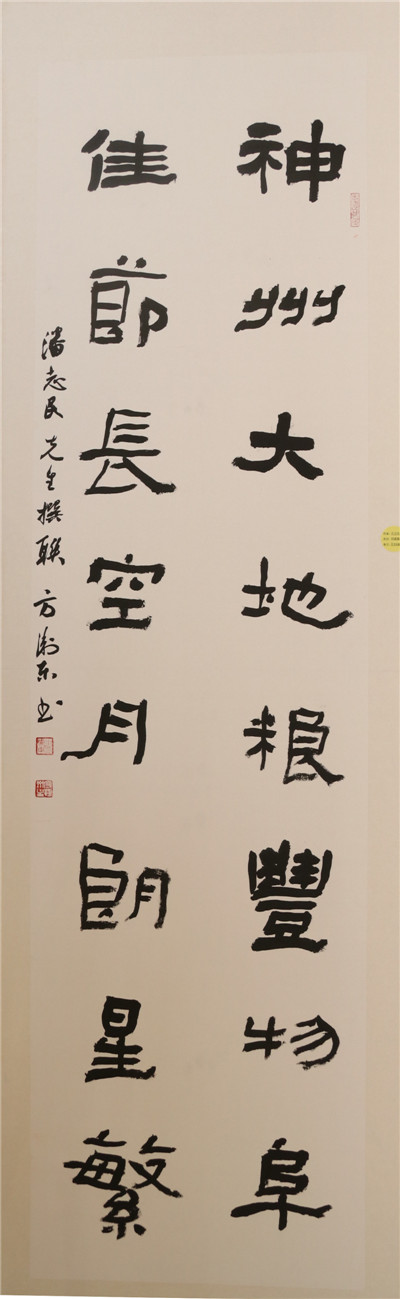 神州大地粮豐物阜
佳節長空月朗星繁
潘志民先生撰聯 方衛東书